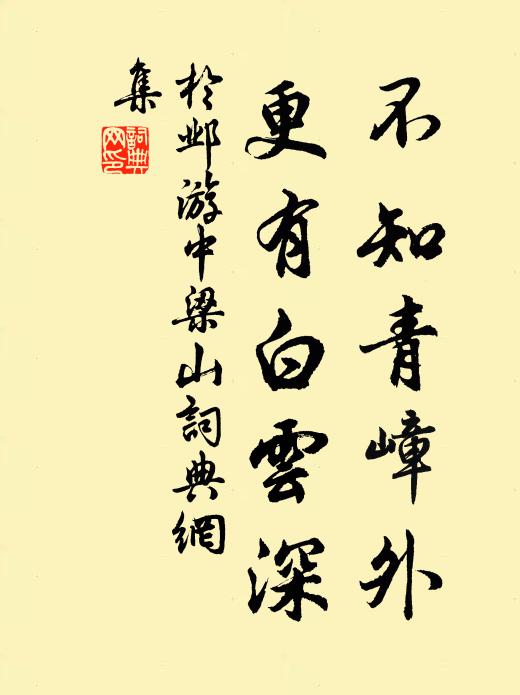 不知青嶂外
更有白雲深
於邺游中梁山詞典網
集
詞典網印